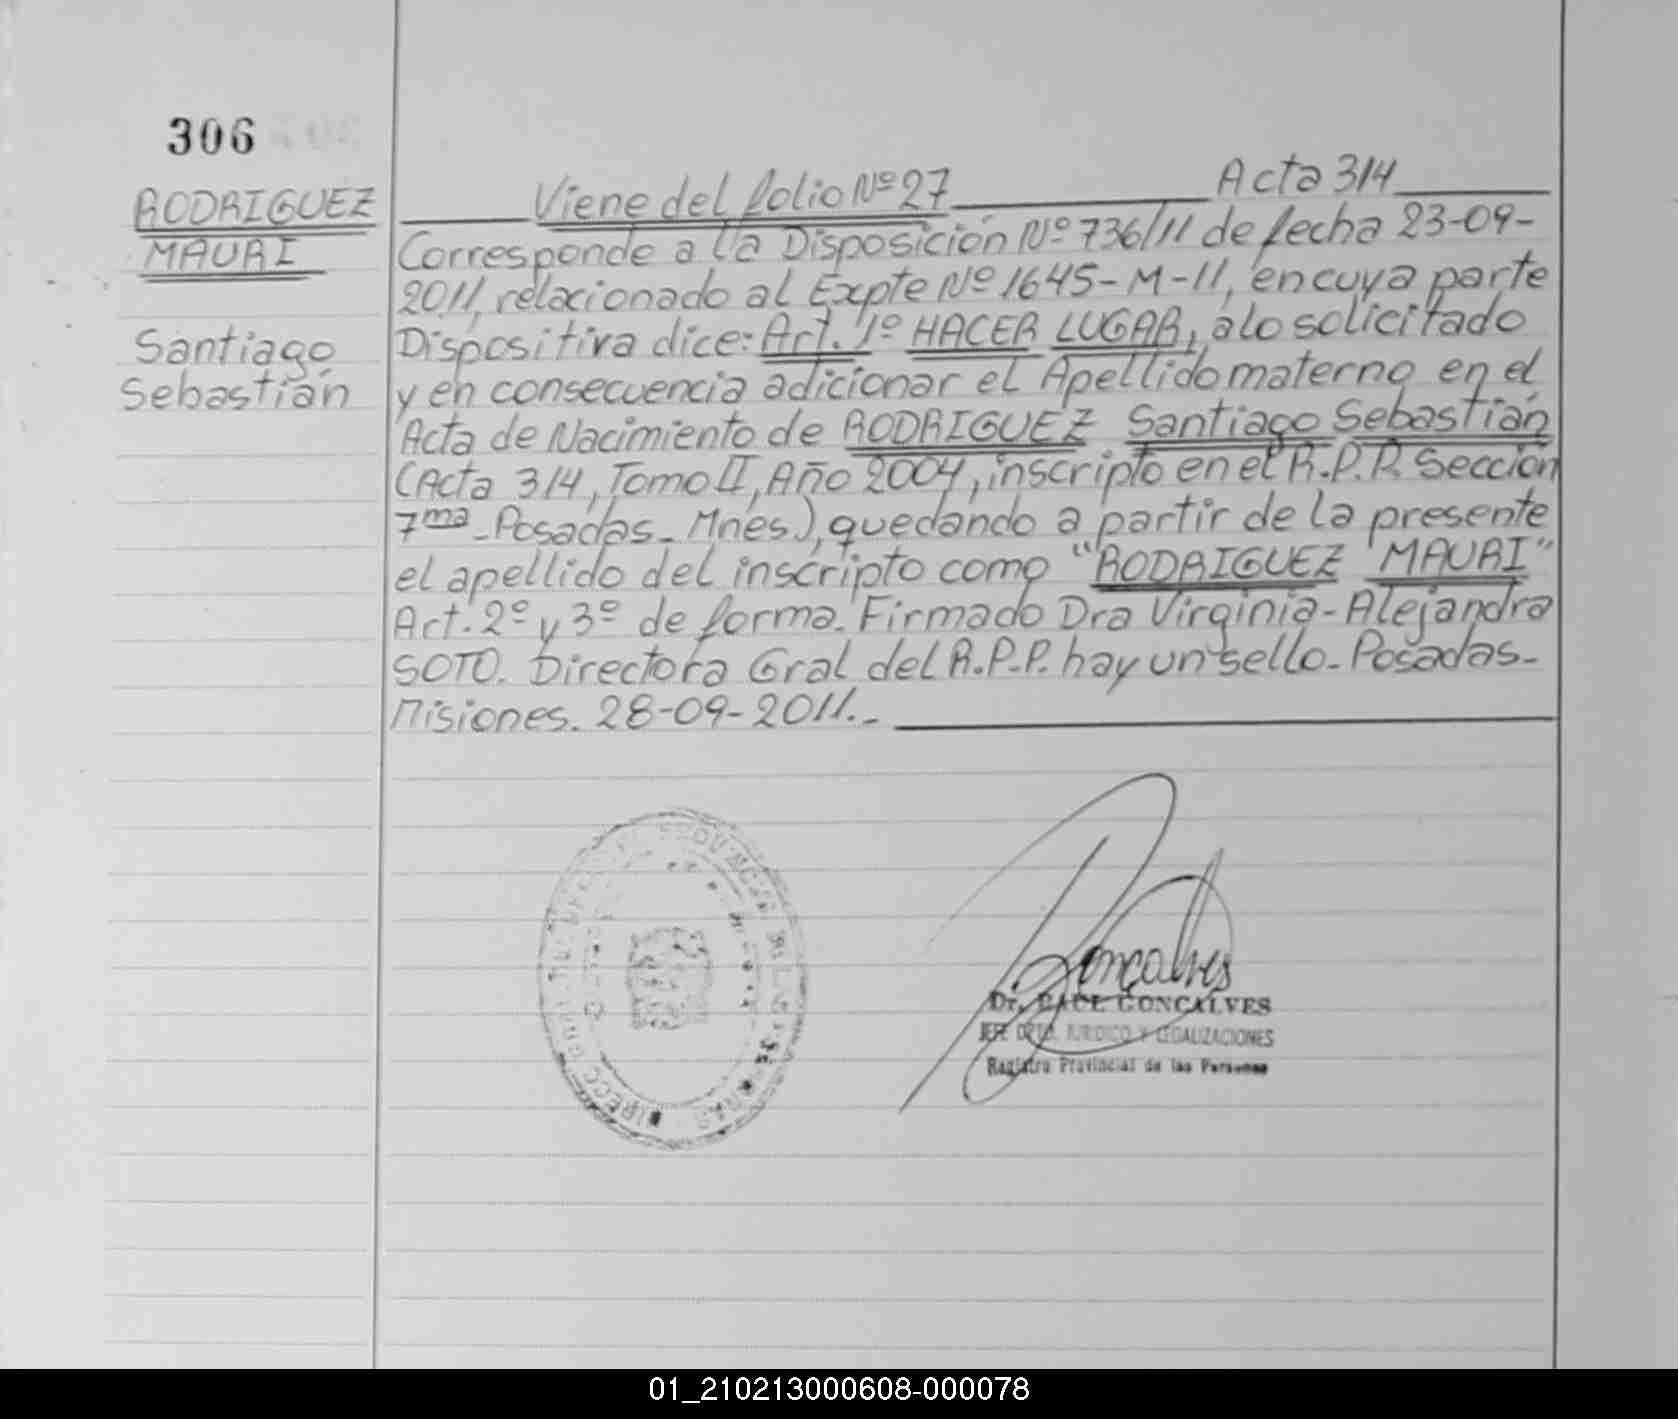 306
RODRIGUEZ
MAURI
Santiago
Sebastián
Viene del folio Nº 27 Acta 314
Corresponde a la Disposición Nº 736/11 de fecha 23-09-
2011, relacionado al Expte Nº 1645-M-11, en cuya parte
Dispositiva dice: Art. 1º HACER LUGAR, a lo solicitado
y en consecuencia adicionar el Apellido materno en el
Acta de Nacimiento de RODRIGUEZ Santiago Sebastián
(Acta 314, Tomo II, Año 2004, inscripto en el R.P.P. Sección
7ma - Posadas - Mnes.), quedando a partir de la presente
el apellido del inscripto como "RODRIGUEZ MAURI"
Art. 2º y 3º de forma. Firmado Dra Virginia - Alejandra
SOTO. Directora Gral del R.P.P. hay un sello - Posadas -
Misiones. 28-09-2011.-
Gonçalves
Dr. RAUL GONCALVES
JEFE DPTO. JURIDICO Y LEGALIZACIONES
Registro Provincial de las Personas
01_210213000608-000078